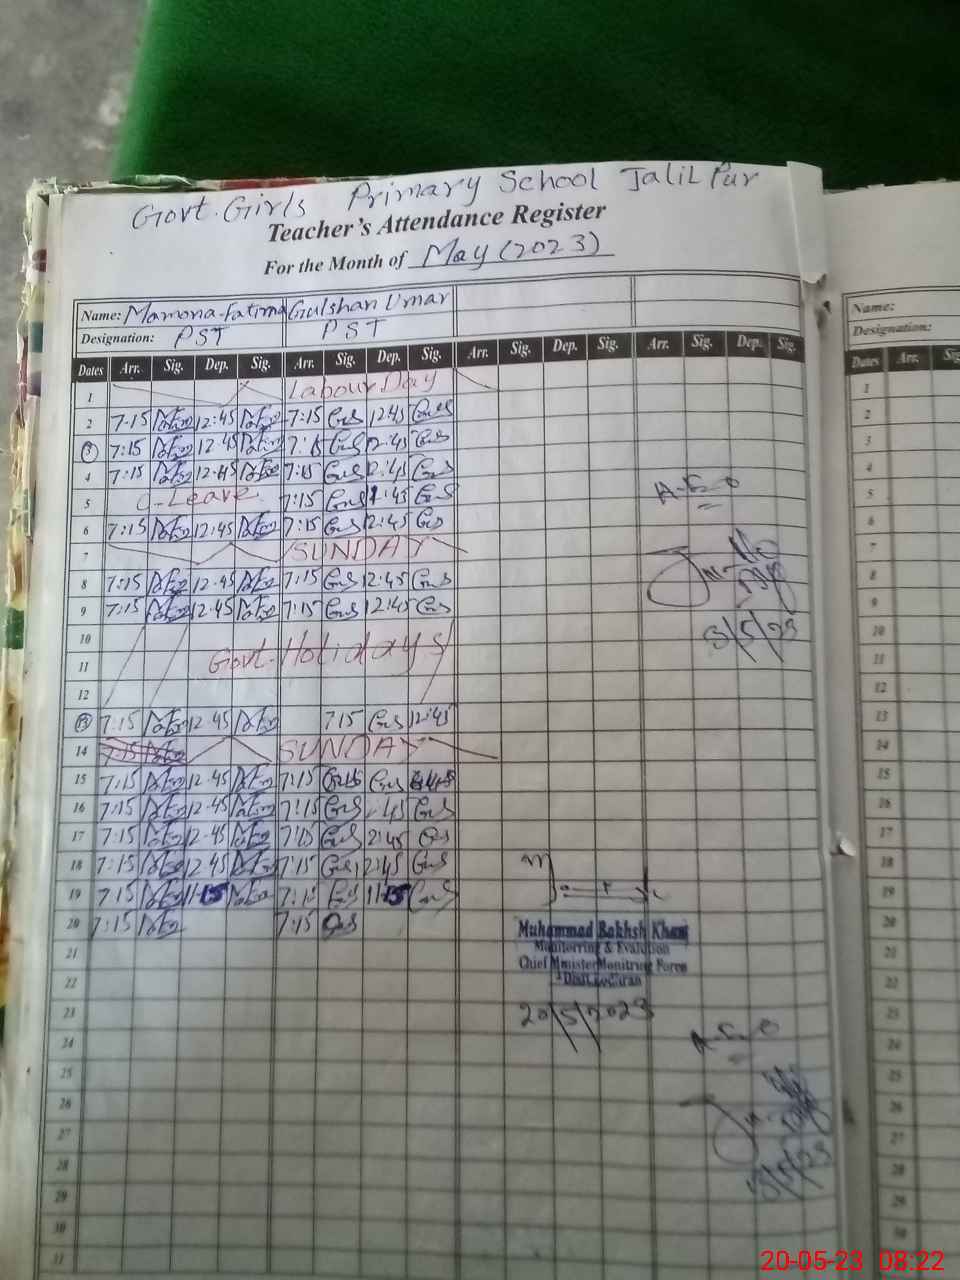 Govt. Girls Primary School Jalil Pur
Teacher's Attendance Register
For the Month of May (2023)
Name: Mamona Fatima Gulshan Umar
Designation: PST PST
Dates Arr. Sig. Dep. Sig. Arr. Sig. Dep. Sig. Arr. Sig. Dep. Sig. Arr. Sig. Dep. Sig.
1 Labour Day
2 7-15 12:45 7:15 12:45
3 7:15 12:45 7:15 12:45
4 7:15 12:45 7:15 12:45
5 C-Leave 7:15 12:45
6 7:15 12:45 7:15 12:45
7 SUNDAY
8 7:15 12:45 7:15 12:45
9 7:15 12:45 7:15 12:45
10
11 Govt. Holidays
12
13 7:15 12:45 7:15 12:45
14 7:15 SUNDAY
15 7:15 12:45 7:15
16 7:15 12:45 7:15 :45
17 7:15 12:45 7:15 2:45
18 7:15 12:45 7:15 12:45
19 7:15 11:15 7:15 11:15
20 7:15 7:15
21
22
23
24
25
26
27
28
29
30
31
A-E-O
3/5/23
Muhammad Bakhsh Khan
Monitorring & Evalution
Chief Minister Monitring Force
Distt. Lodhran
20/5/2023
A-E-O
13/5/23
Name:
Designation:
Dates Arr. Sig.
1
2
3
4
5
6
7
8
9
10
11
12
13
14
15
16
17
18
19
20
21
22
23
24
25
26
27
28
29
30
20-05-23 08:22